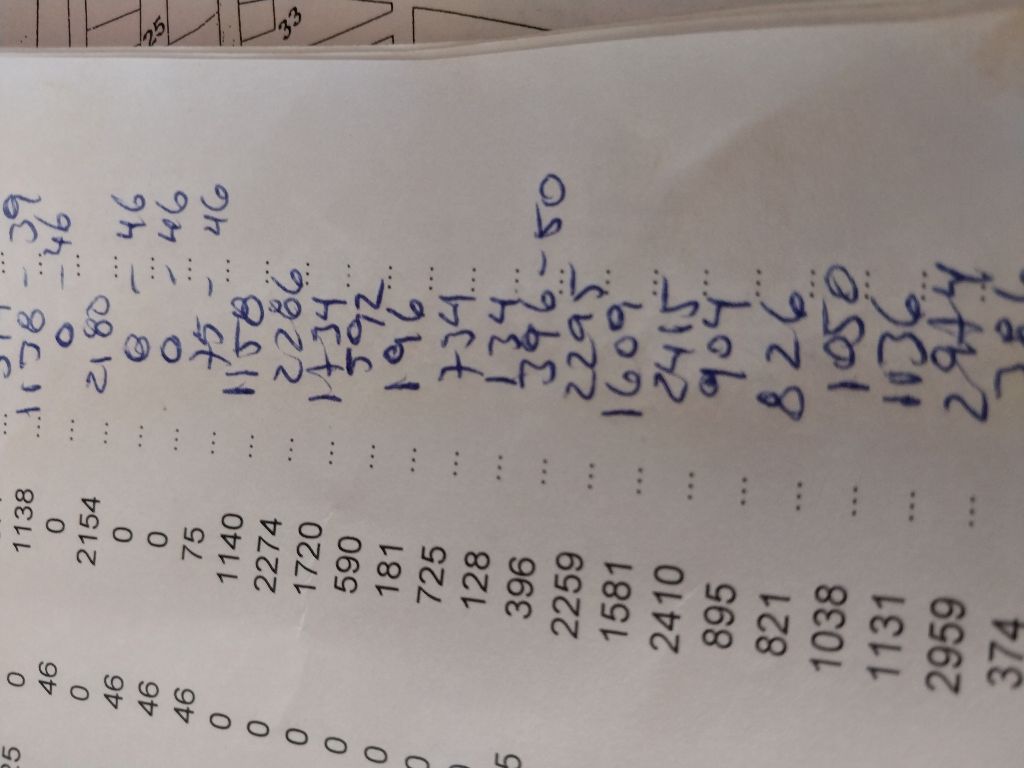 25
33
0 1138 ... 1158 ... - 39
46 0 ... 0 ... - 46
0 2154 ... 2180 ...
46 0 ... 0 ... - 46
46 0 ... 0 ... - 46
46 75 ... 75 ... - 46
0 1140 ... 1158 ...
0 2274 ... 2286 ...
0 1720 ... 1734 ...
0 590 ... 592 ...
0 181 ... 196 ...
0 725 ... 734 ...
128 ... 134 ...
396 ... 396 ... - 50
2259 ... 2295 ...
1581 ... 1609 ...
2410 ... 2415 ...
895 ... 904 ...
821 ... 826 ...
1038 ... 1050 ...
1131 ... 1136 ...
2959 ... 2974 ...
374 386